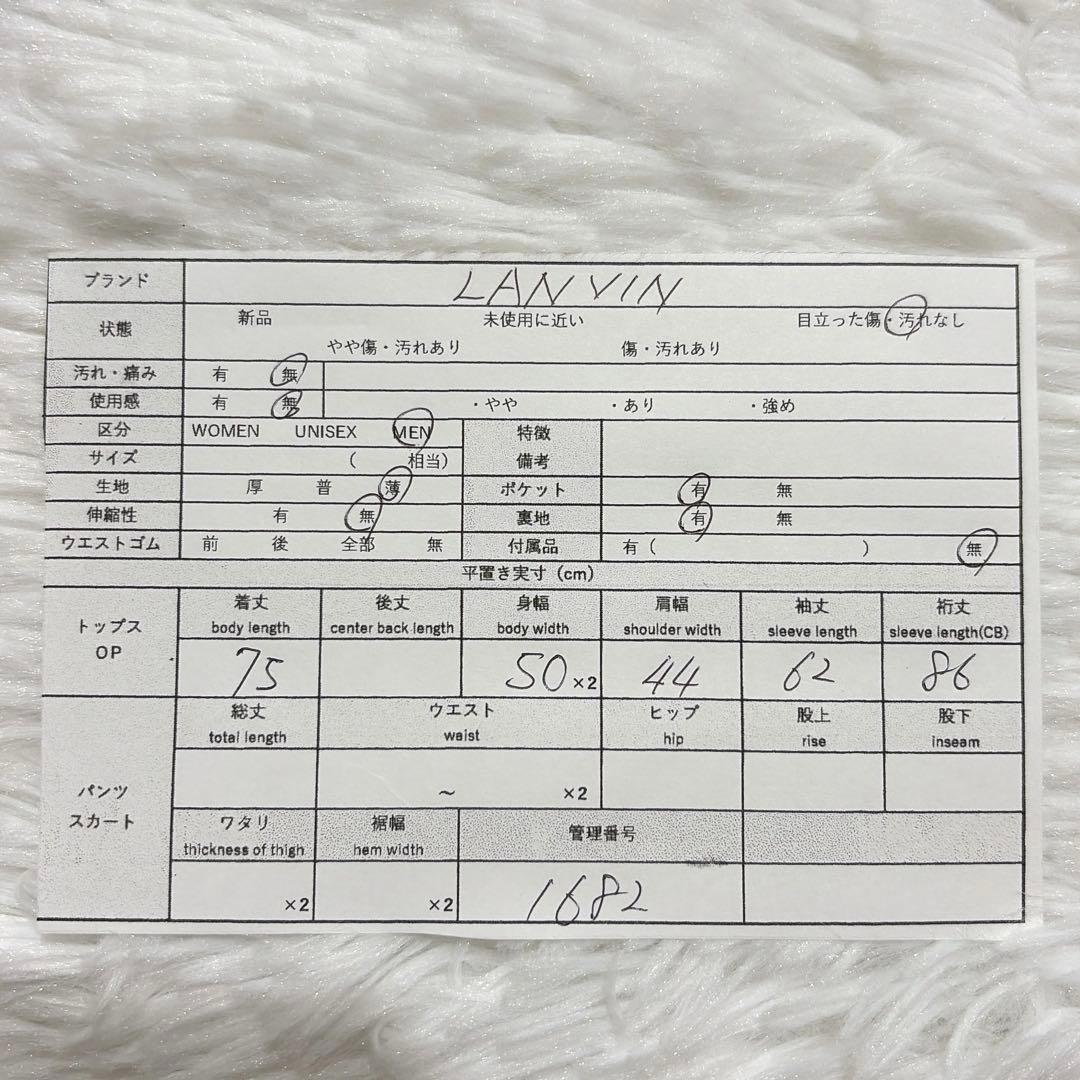 ブランド LANVIN
状態 新品 未使用に近い 目立った傷・汚れなし
やや傷・汚れあり 傷・汚れあり
汚れ・痛み 有 無
使用感 有 無 ・やや ・あり ・強め
区分 WOMEN UNISEX MEN 特徴
サイズ ( 相当) 備考
生地 厚 普 薄 ポケット 有 無
伸縮性 有 無 裏地 有 無
ウエストゴム 前 後 全部 無 付属品 有 ( ) 無
平置き実寸 (cm)
トップス OP
着丈 後丈 身幅 肩幅 袖丈 裄丈
body length center back length body width shoulder width sleeve length sleeve length(CB)
75 50 ×2 44 62 86
パンツ スカート
総丈 ウエスト ヒップ 股上 股下
total length waist hip rise inseam
~ ×2
ワタリ 裾幅 管理番号
thickness of thigh hem width
×2 ×2 1682